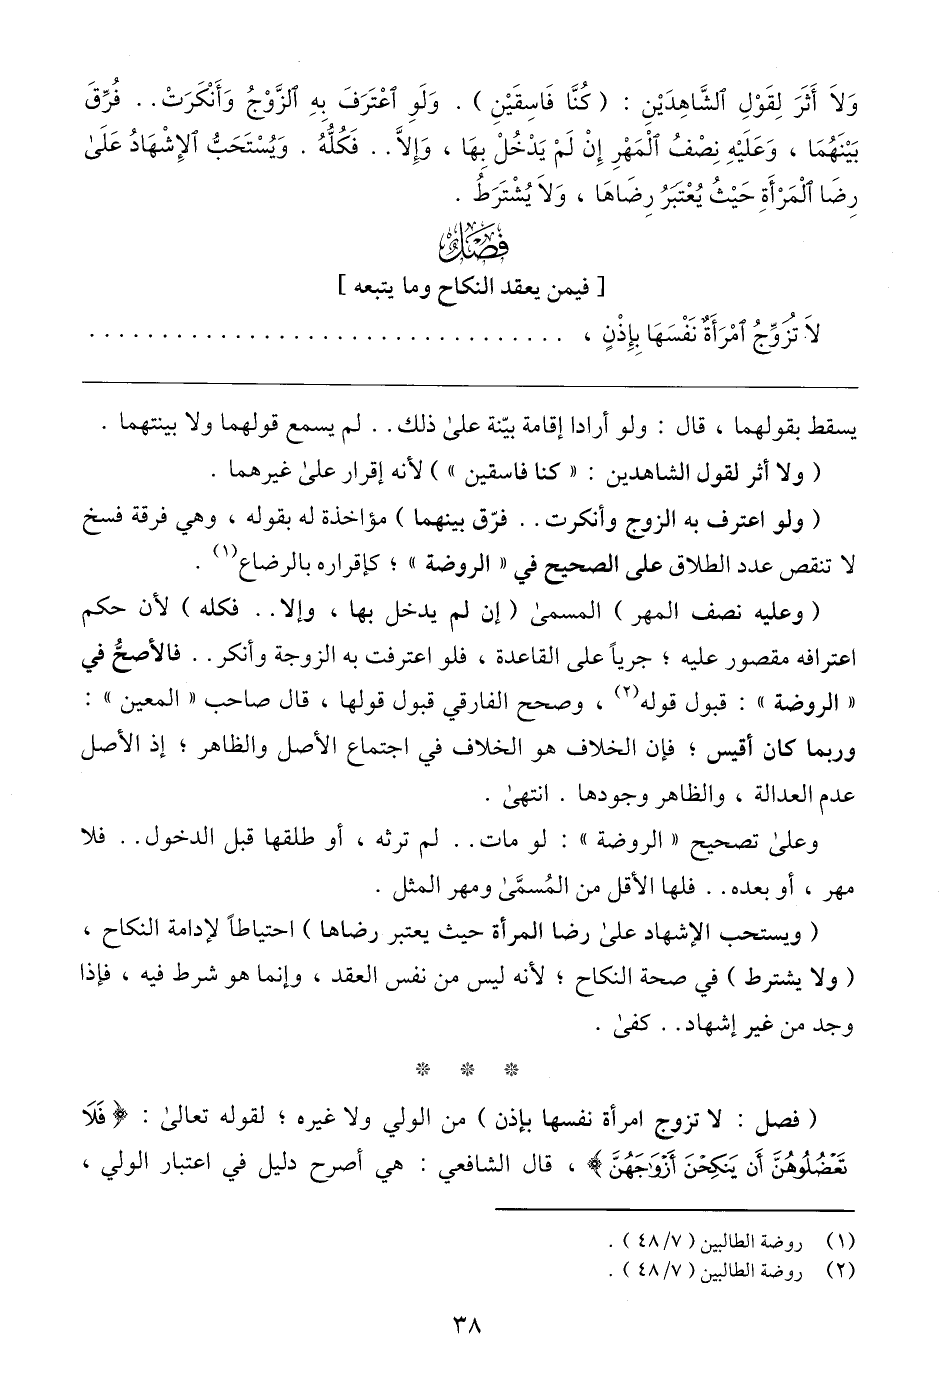 وَلاَ أَثَرَ لِقَوْلِ ٱلشَّاهِدَيْنِ : ( كُنَّا فَاسِقَيْنِ ) . وَلَوِ ٱعْتَرَفَ بِهِ ٱلزَّوْجُ وَأَنْكَرَتْ.. فُرِّقَ
بَيْنَهُمَا ، وَعَلَيْهِ نِصْفُ ٱلْمَهْرِ إِنْ لَمْ يَدْخُلْ بِهَا ، وَإِلاَّ.. فَكُلُّهُ . وَيُسْتَحَبُّ ٱلإِشْهَادُ عَلَىٰ
رِضَا ٱلْمَرْأَةِ حَيْثُ يُعْتَبَرُ رِضَاهَا ، وَلاَ يُشْتَرَطُ .
فَصْلٌ
[ فيمن يعقد النكاح وما يتبعه ]
لاَ تُزَوِّجُ ٱمْرَأَةٌ نَفْسَهَا بِإِذْنٍ ، . . . . . . . . . . . . . . . . . . . . . . . . . . . . . . . . .
يسقط بقولهما ، قال : ولو أرادا إقامة بيّنة علىٰ ذلك.. لم يسمع قولهما ولا بينتهما .
( ولا أثر لقول الشاهدين : « كنا فاسقين » ) لأنه إقرار علىٰ غيرهما .
( ولو اعترف به الزوج وأنكرت.. فرّق بينهما ) مؤاخذة له بقوله ، وهي فرقة فسخ
لا تنقص عدد الطلاق على الصحيح في « الروضة » ؛ كإقراره بالرضاع(١) .
( وعليه نصف المهر ) المسمىٰ ( إن لم يدخل بها ، وإلا.. فكله ) لأن حكم
اعترافه مقصور عليه ؛ جرياً على القاعدة ، فلو اعترفت به الزوجة وأنكر.. فالأصحُّ في
« الروضة » : قبول قوله(٢) ، وصحح الفارقي قبول قولها ، قال صاحب « المعين » :
وربما كان أقيس ؛ فإن الخلاف هو الخلاف في اجتماع الأصل والظاهر ؛ إذ الأصل
عدم العدالة ، والظاهر وجودها . انتهىٰ .
وعلىٰ تصحيح « الروضة » : لو مات.. لم ترثه ، أو طلقها قبل الدخول.. فلا
مهر ، أو بعده.. فلها الأقل من المُسمَّىٰ ومهر المثل .
( ويستحب الإشهاد علىٰ رضا المرأة حيث يعتبر رضاها ) احتياطاً لإدامة النكاح ،
( ولا يشترط ) في صحة النكاح ؛ لأنه ليس من نفس العقد ، وإنما هو شرط فيه ، فإذا
وجد من غير إشهاد.. كفىٰ .
* * *
( فصل : لا تزوج امرأة نفسها بإذن ) من الولي ولا غيره ؛ لقوله تعالىٰ : ﴿ فَلَا
تَعْضُلُوهُنَّ أَن يَنكِحْنَ أَزْوَٰجَهُنَّ ﴾ ، قال الشافعي : هي أصرح دليل في اعتبار الولي ،
(١) روضة الطالبين ( ٤٨/٧ ) .
(٢) روضة الطالبين ( ٤٨/٧ ) .
٣٨